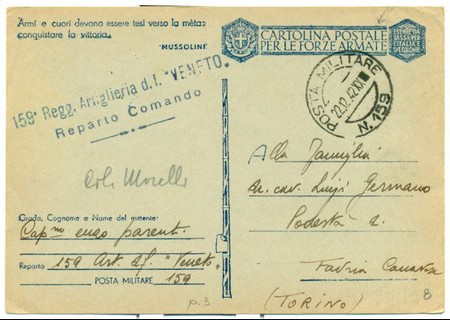 Armi e cuori devono essere tesi verso la mèta:
conquistare la vittoria.
MUSSOLINI
CARTOLINA POSTALE
PER LE FORZE ARMATE
159° Regg. Artiglieria d.f. "VENETO"
Reparto Comando
POSTA MILITARE
22.12.42 XXI
N. 159
Alla Famiglia
cav. Luigi Germano
Podestà
Favria Canavese
(TORINO)
Morelli
Grado, Cognome e Nome del mittente:
Cap.no enzo parenti
Reparto 159 Art. d.f. "Veneto"
POSTA MILITARE 159
p.3
8